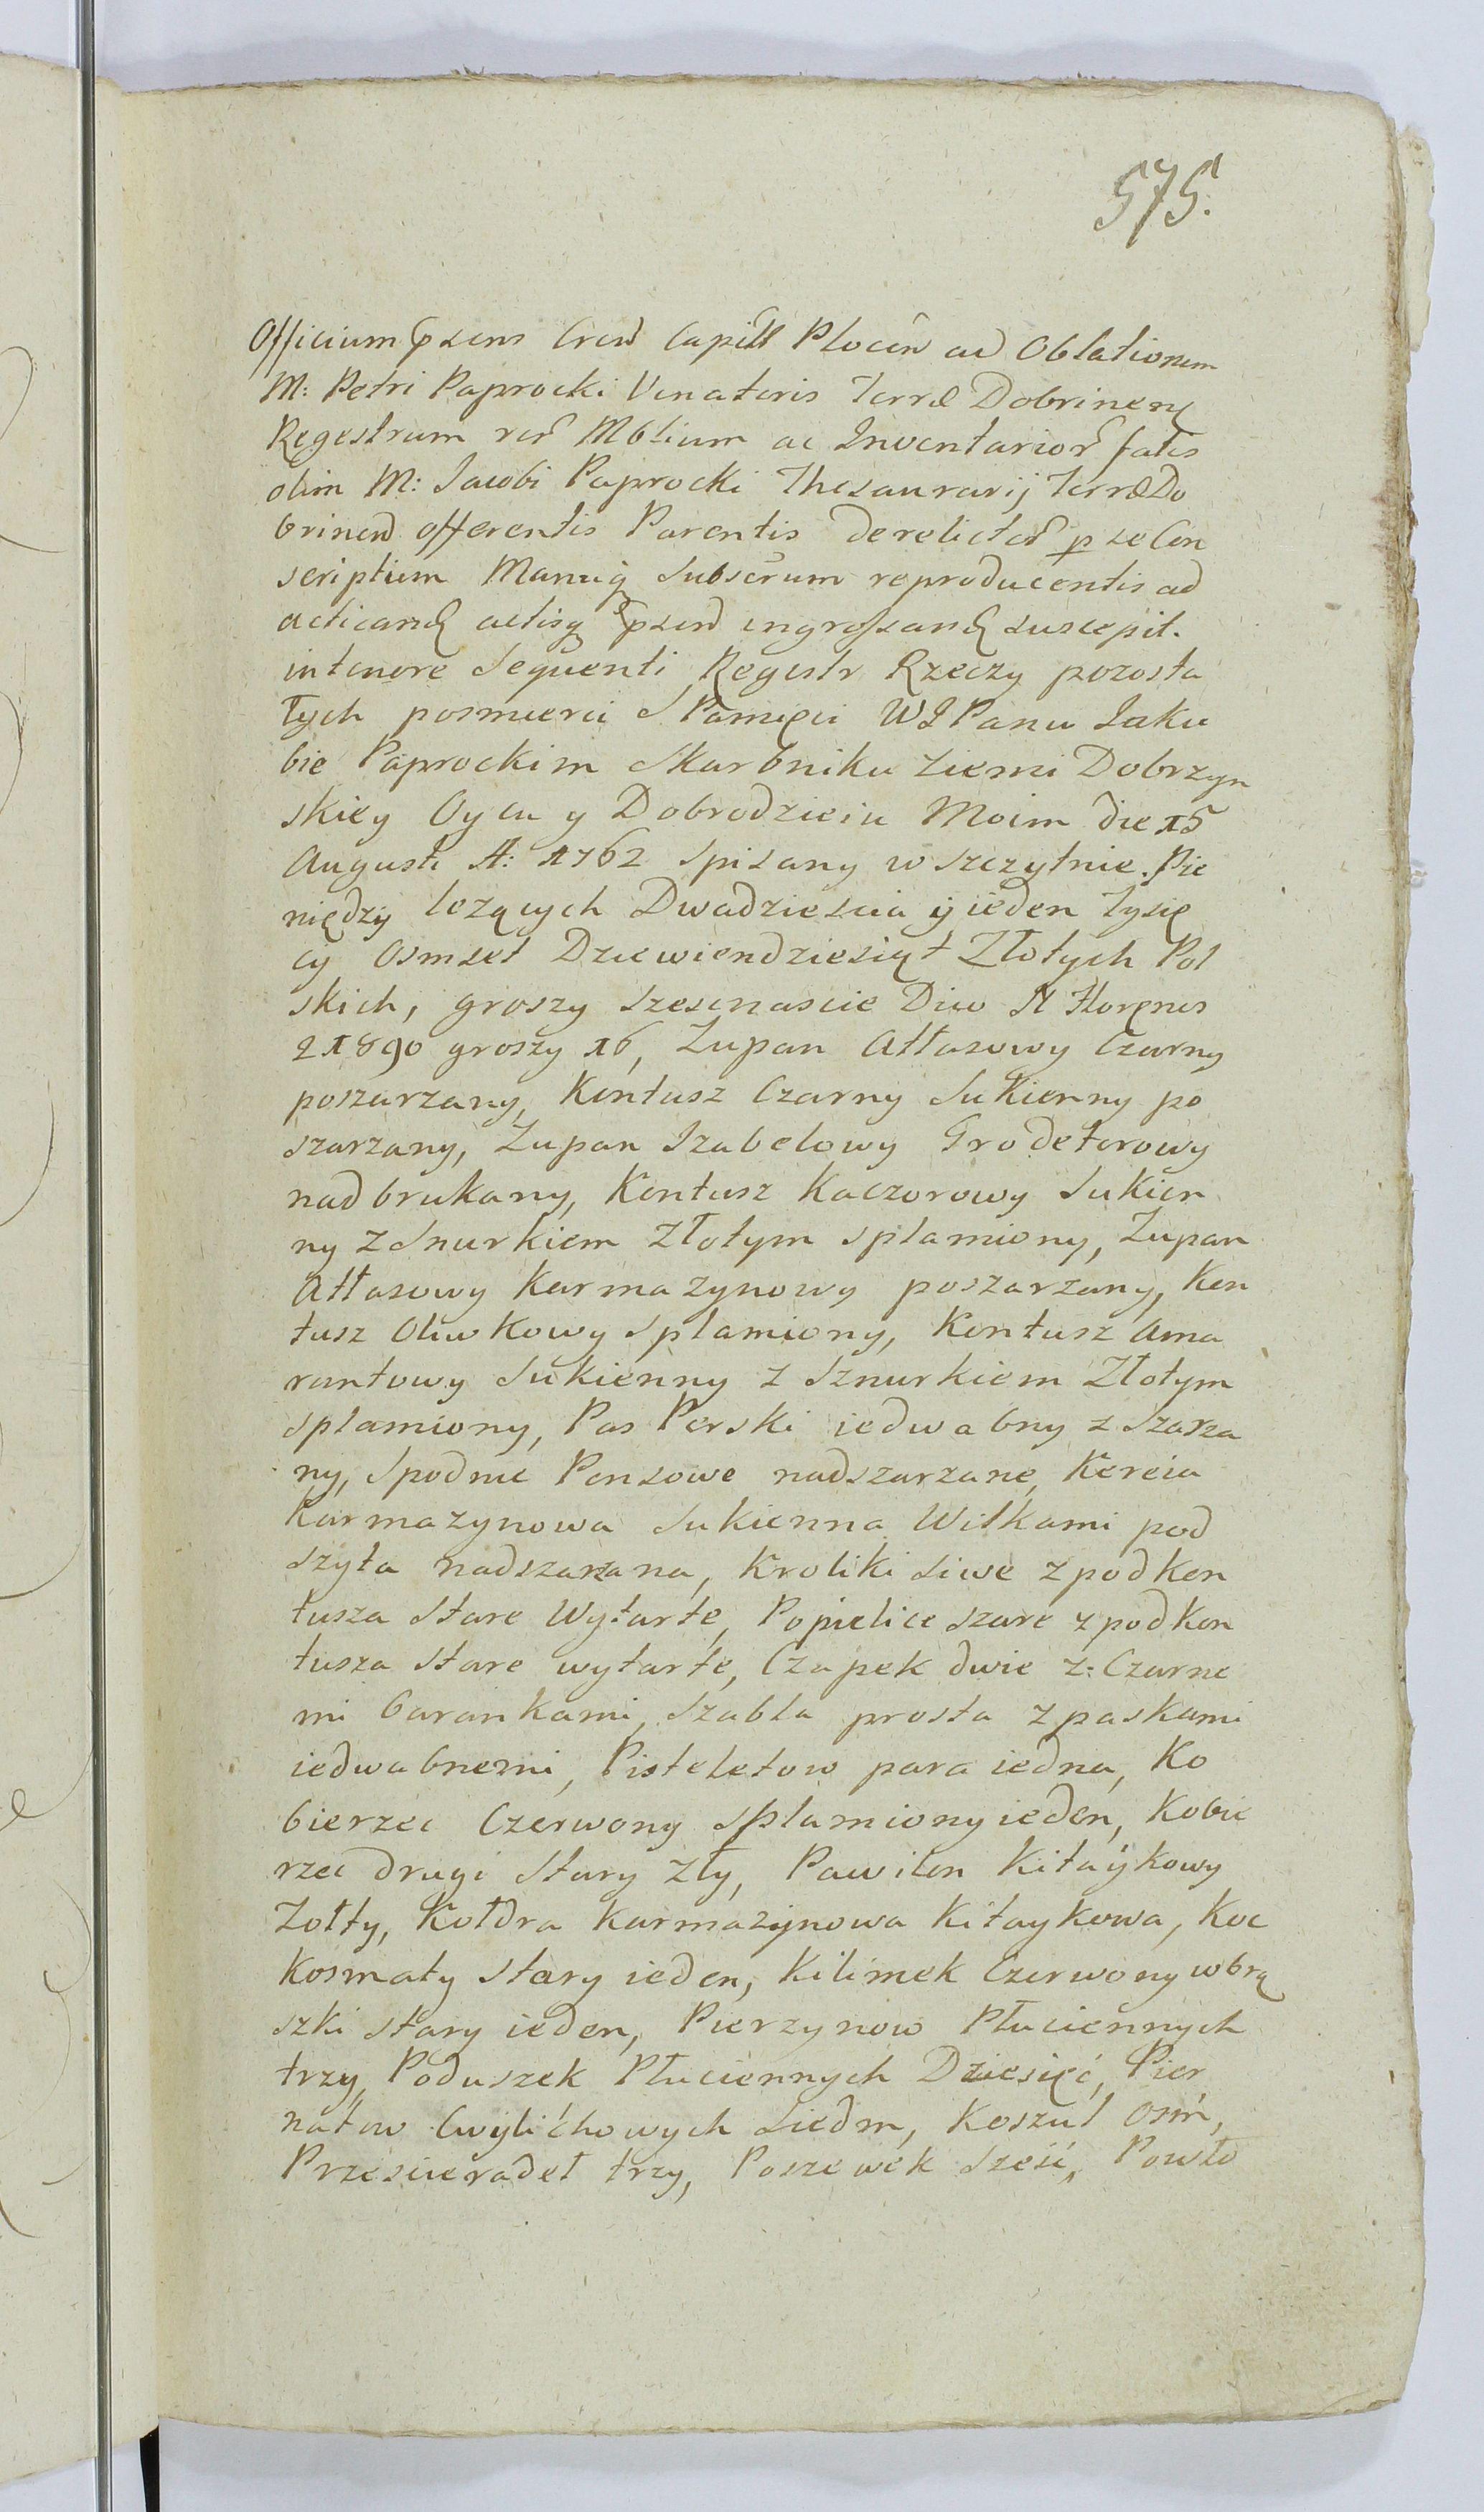 575.
Officium Capitll Plocen ad Oblationem
M: Petri Paprocki Venatoris Terræ Dobrinen
Regestrum rer Mblium ac Inventarior fatis
olim M: Jacobi Paprocki Thesaurarij Terræ Do
brinen offerentis Parentis derelictor p se Con
scriptum Manuq Subscrum reproducentis ad
acticand actisq psen ingrossand suscepit.
intenore Sequenti, Regestr Rzeczy pozosta
łych posmierci S Pamięci WJPanu Jaku
bie Paprockim Skarbniku Ziemi Dobrzyn
skiey Oycu y Dobrodzieiu Moim die 15
Augusti A: 1762 Spisany w Szczytnie. Pie
niędzy lezących Dwadziescia y ieden Tysię
cy Osmset Dziewiendziesiąt Złotych Pol
skich, groszy szesnascie Dico N Florenos
21890 groszy 16, Zupan Atłasowy Czarny
poszarzany, Kontusz Czarny Sukienny po
szarzany, Zupan Izabelowy Grodetorowy
nadbrukany, Kontusz Kaczorowy Sukien
ny z Snurkiem Złotym splamiony, Zupan
Atłasowy Karmazynowy poszarzany, Kon
tusz Oliwkowy Splamiony, Kontusz Ama
rantowy Sukienny z Sznurkiem Złotym
splamiony, Pas Perski iedwabny zszarza
ny, Spodnie Ponsowe nadszarzane, Kereia
Karmazynowa Sukienna Wilkami pod
szyta nadszarzana, Kroliki Siwe zpod Kon
tusza Stare Wytarte, Popielice szare zpod Kon
tusza Stare wytarte, Czapek dwie z: Czarne
mi barankami, Szabla prosta z paskami
iedwabnemi, Pistoletow para iedna, Ko
bierzec Czerwony splamiony ieden, Kobie
rzec drugi Stary zły, Pawilon Kitaykowy
Zołty, Kołdra Karmazynowa Kitaykowa, Koc
Kosmaty Stary ieden, Kilimek Czerwony wbrą
szki stary ieden, Pierzynow Płuciennych
trzy, Poduszek Płuciennych Dziesięć, Pier
natow Cwylichowych Siedm, Koszul Osm,
Przescieradeł trzy, Poszewek Sześć, Powło